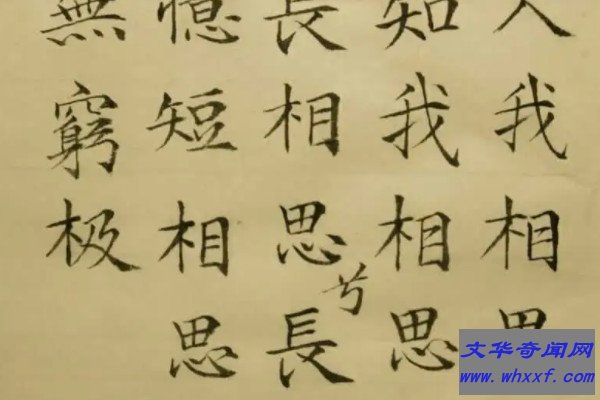 入我相思
知我相思
長相思兮長
憶短相思
無窮极
文华奇闻网
www.whxxf.com